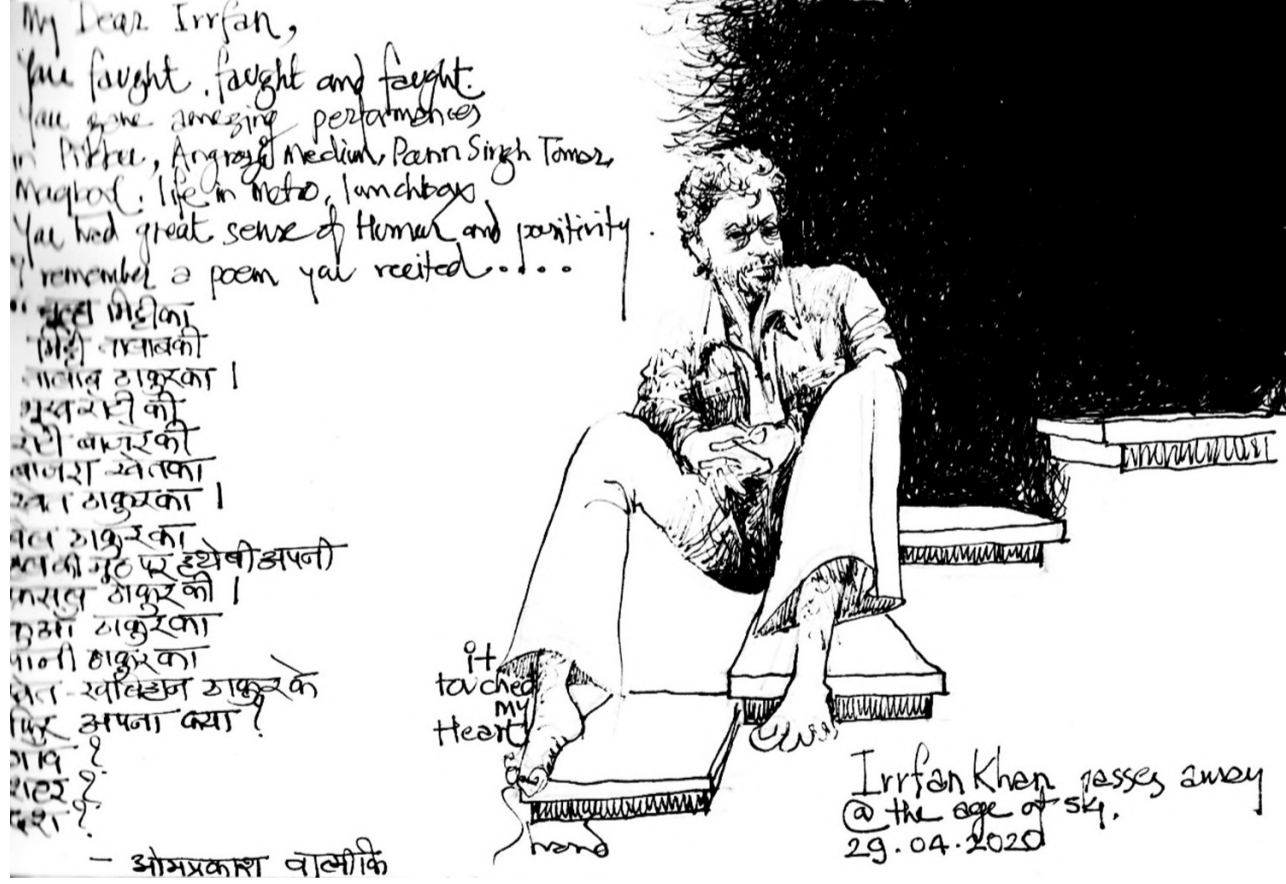 My Dear Irrfan,
You faught, faught and faught.
You gave amezing performences
in Pikku, Angrezi Medium, Pann Singh Tomar,
Maqbool, life in metro, lunchbox,
You had great sense of Humar and positivity.
I remember a poem you recited.....
"चूल्हा मिट्टी का
मिट्टी तालाब की
तालाब ठाकुर का ।
भूख रोटी की
रोटी बाजरे की
बाजरा खेत का
खेत ठाकुर का ।
बैल ठाकुर का
हल की मूठ पर हथेली अपनी
फसल ठाकुर की ।
कुआँ ठाकुर का
पानी ठाकुर का
खेत-खलिहान ठाकुर के
फिर अपना क्या ?
गांव ?
शहर ?
देश ?
- ओमप्रकाश वाल्मीकि
it
touched
my
Heart
Irrfan Khan passes away
@ the age of 54.
29.04.2020